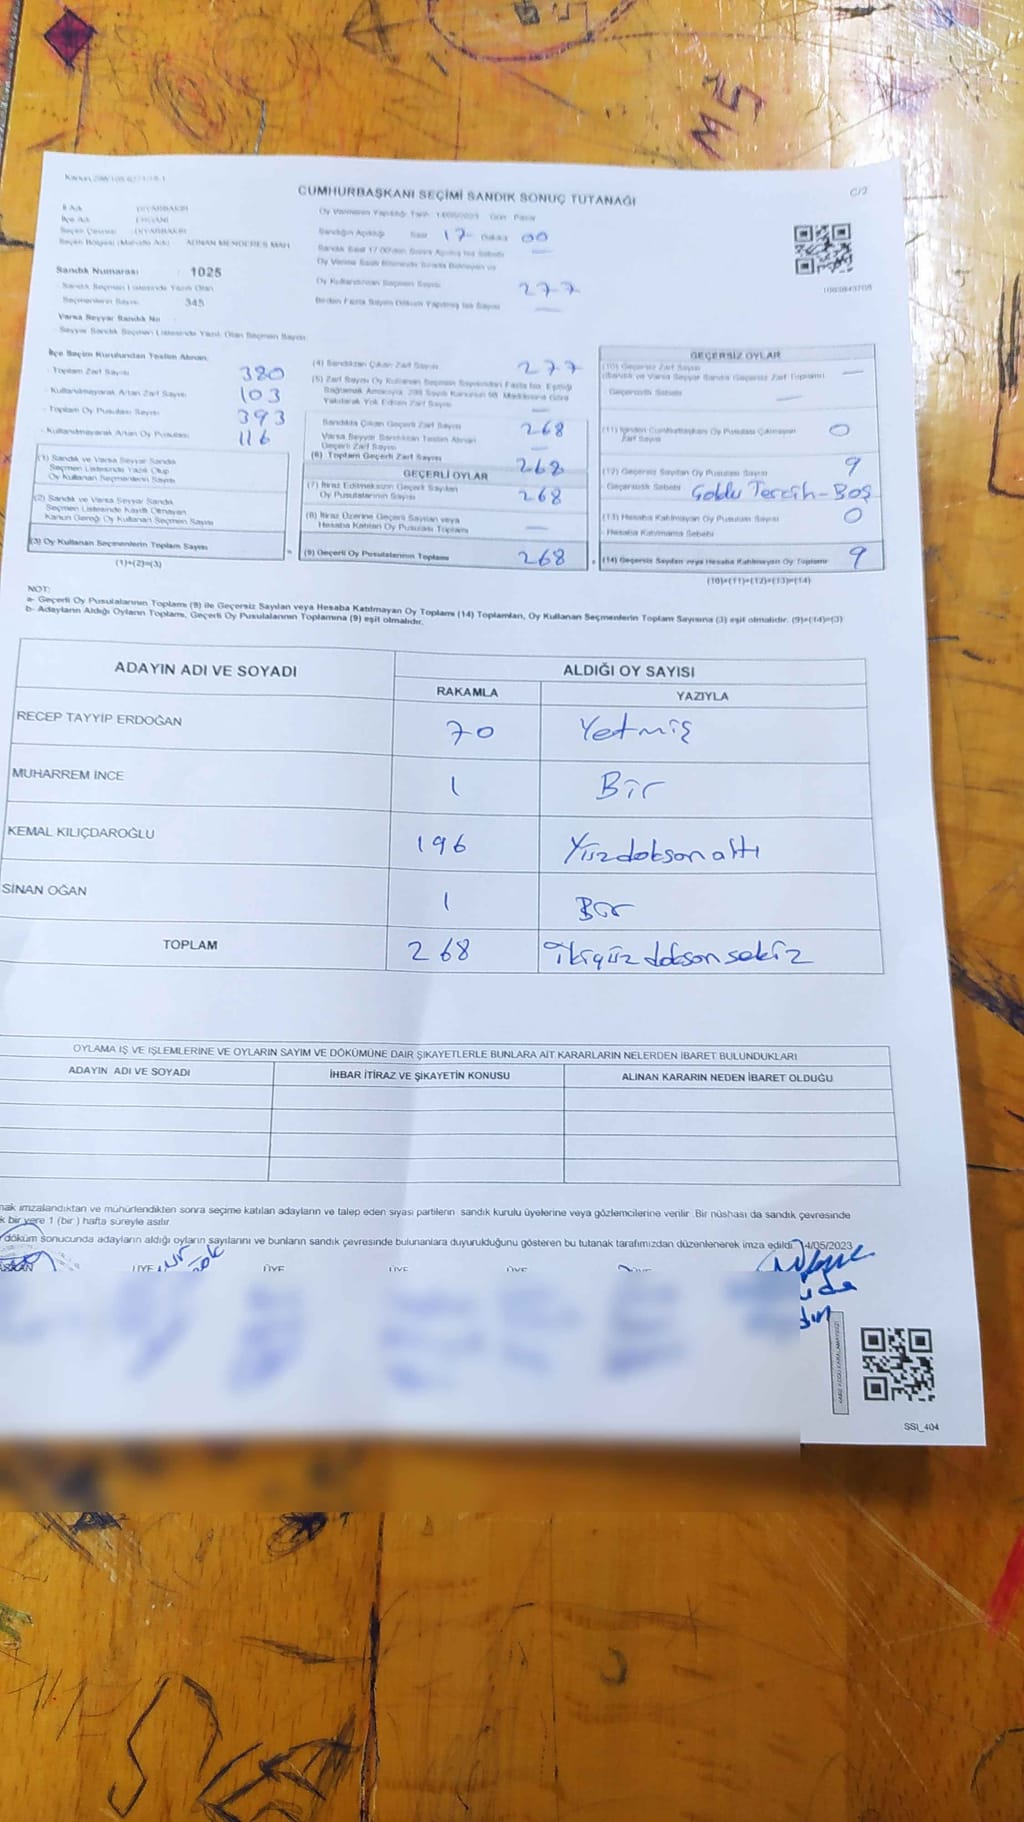 CUMHURBAŞKANI SEÇİMİ SANDIK SONUÇ TUTANAĞI
C/2
İl Adı DİYARBAKIR
İlçe Adı ERGANİ
Seçim Çevresi DİYARBAKIR
Seçim Bölgesi (Mahalle Adı) ADNAN MENDERES MAH
Sandık Numarası : 1025
Sandık Seçmen Listesinde Yazılı Olan
Seçmenlerin Sayısı 345
Varsa Seyyar Sandık No
Seyyar Sandık Seçmen Listesinde Yazılı Olan Seçmen Sayısı
Sandığın Açıldığı Saat 17 Dakika 00
Oy Kullandırılan Seçmen Sayısı 277
Birden Fazla Sayım Döküm Yapılmış İse Sayısı —
İlçe Seçim Kurulundan Teslim Alınan:
Toplam Zarf Sayısı 380
Kullanılmayarak Artan Zarf Sayısı 103
Toplam Oy Pusulası Sayısı 393
Kullanılmayarak Artan Oy Pusulası 116
(1) Sandık ve Varsa Seyyar Sandık
Seçmen Listesinde Yazılı Olup
Oy Kullanan Seçmenlerin Sayısı
(2) Sandık ve Varsa Seyyar Sandık
Seçmen Listesinde Kayıtlı Olmayan
Kanun Gereği Oy Kullanan Seçmen Sayısı
(3) Oy Kullanan Seçmenlerin Toplam Sayısı
(1)+(2)=(3)
(4) Sandıktan Çıkan Zarf Sayısı 277
(5) Zarf Sayısı Oy Kullanan Seçmen Sayısından Fazla İse, Eşitliği
Sağlamak Amacıyla, 298 Sayılı Kanunun 98. Maddesine Göre
Yakılarak Yok Edilen Zarf Sayısı —
Sandıkta Çıkan Geçerli Zarf Sayısı 268
Varsa Seyyar Sandıktan Teslim Alınan
Geçerli Zarf Sayısı —
(6) Toplam Geçerli Zarf Sayısı 268
GEÇERLİ OYLAR
(7) İtiraz Edilmeksizin Geçerli Sayılan
Oy Pusulalarının Sayısı 268
(8) İtiraz Üzerine Geçerli Sayılan veya
Hesaba Katılan Oy Pusulası Toplamı —
(9) Geçerli Oy Pusulalarının Toplamı 268
GEÇERSİZ OYLAR
(10) Geçersiz Zarf Sayısı
(Sandık ve Varsa Seyyar Sandık Geçersiz Zarf Toplamı) —
Geçersizlik Sebebi —
(11) İçinden Cumhurbaşkanı Oy Pusulası Çıkmayan
Zarf Sayısı 0
(12) Geçersiz Sayılan Oy Pusulası Sayısı 9
Geçersizlik Sebebi Tercih-Boş
(13) Hesaba Katılmayan Oy Pusulası Sayısı 0
Hesaba Katılmama Sebebi
(14) Geçersiz Sayılan veya Hesaba Katılmayan Oy Toplamı 9
(10)+(11)+(12)+(13)=(14)
NOT:
a- Geçerli Oy Pusulalarının Toplamı (9) ile Geçersiz Sayılan veya Hesaba Katılmayan Oy Toplamı (14) Toplamları, Oy Kullanan Seçmenlerin Toplam Sayısına (3) eşit olmalıdır. (9)+(14)=(3)
b- Adayların Aldığı Oyların Toplamı, Geçerli Oy Pusulalarının Toplamına (9) eşit olmalıdır.
ADAYIN ADI VE SOYADI ALDIĞI OY SAYISI
RAKAMLA YAZIYLA
RECEP TAYYİP ERDOĞAN 70 Yetmiş
MUHARREM İNCE 1 Bir
KEMAL KILIÇDAROĞLU 196 Yüzdoksanaltı
SİNAN OĞAN 1 Bir
TOPLAM 268 İkiyüz doksan sekiz
OYLAMA İŞ VE İŞLEMLERİNE VE OYLARIN SAYIM VE DÖKÜMÜNE DAİR ŞİKAYETLERLE BUNLARA AİT KARARLARIN NELERDEN İBARET BULUNDUKLARI
ADAYIN ADI VE SOYADI İHBAR İTİRAZ VE ŞİKAYETİN KONUSU ALINAN KARARIN NEDEN İBARET OLDUĞU
nak imzalandıktan ve mühürlendikten sonra seçime katılan adayların ve talep eden siyasi partilerin sandık kurulu üyelerine veya gözlemcilerine verilir. Bir nüshası da sandık çevresinde
k bir yere 1 (bir) hafta süreyle asılır
döküm sonucunda adayların aldığı oyların sayılarını ve bunların sandık çevresinde bulunanlara duyurulduğunu gösteren bu tutanak tarafımızdan düzenlenerek imza edildi. 14/05/2023
ÜYE ÜYE ÜYE ÜYE
SSI_404
M5